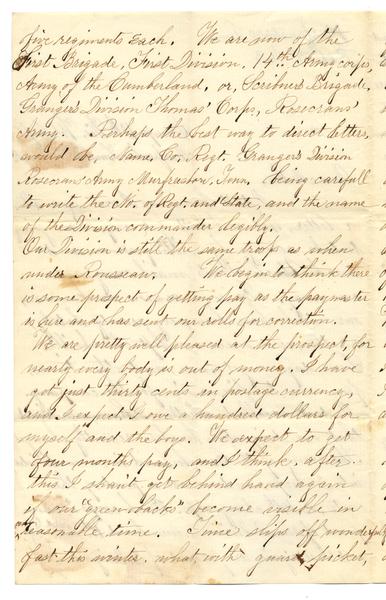 five regiments each. We are now of the
First Brigade, First Division, 14th Army corps,
Army of the Cumberland, or, Scribner's Brigade,
Granger's Division Thomas' Corps, Rosecrans'
Army. Perhaps the best way to direct letters,
would be, Name, Co, Regt. Granger's Division
Rosecrans Army Murfrasboro, Tenn. being carefull
to write the No. of Regt. and State, and the name
of the Division commander legibly.
Our Division is still the same troops as when
under Rousseau. We begin to think there
is some prospect of getting pay as the paymaster
is here and has sent our rolls for correction.
We are pretty well pleased at the prospect, for
nearly every body is out of money. I have
got just thirty cents in postage currency,
and I expect I owe a hundred dollars for
myself and the boys. We expect to get
four months pay, and I think, after
this I shan't get behind hand again
if our "green-backs" become visible in
reasonable time. Time slips off wonderful
fast this winter. what, with guard, picket,